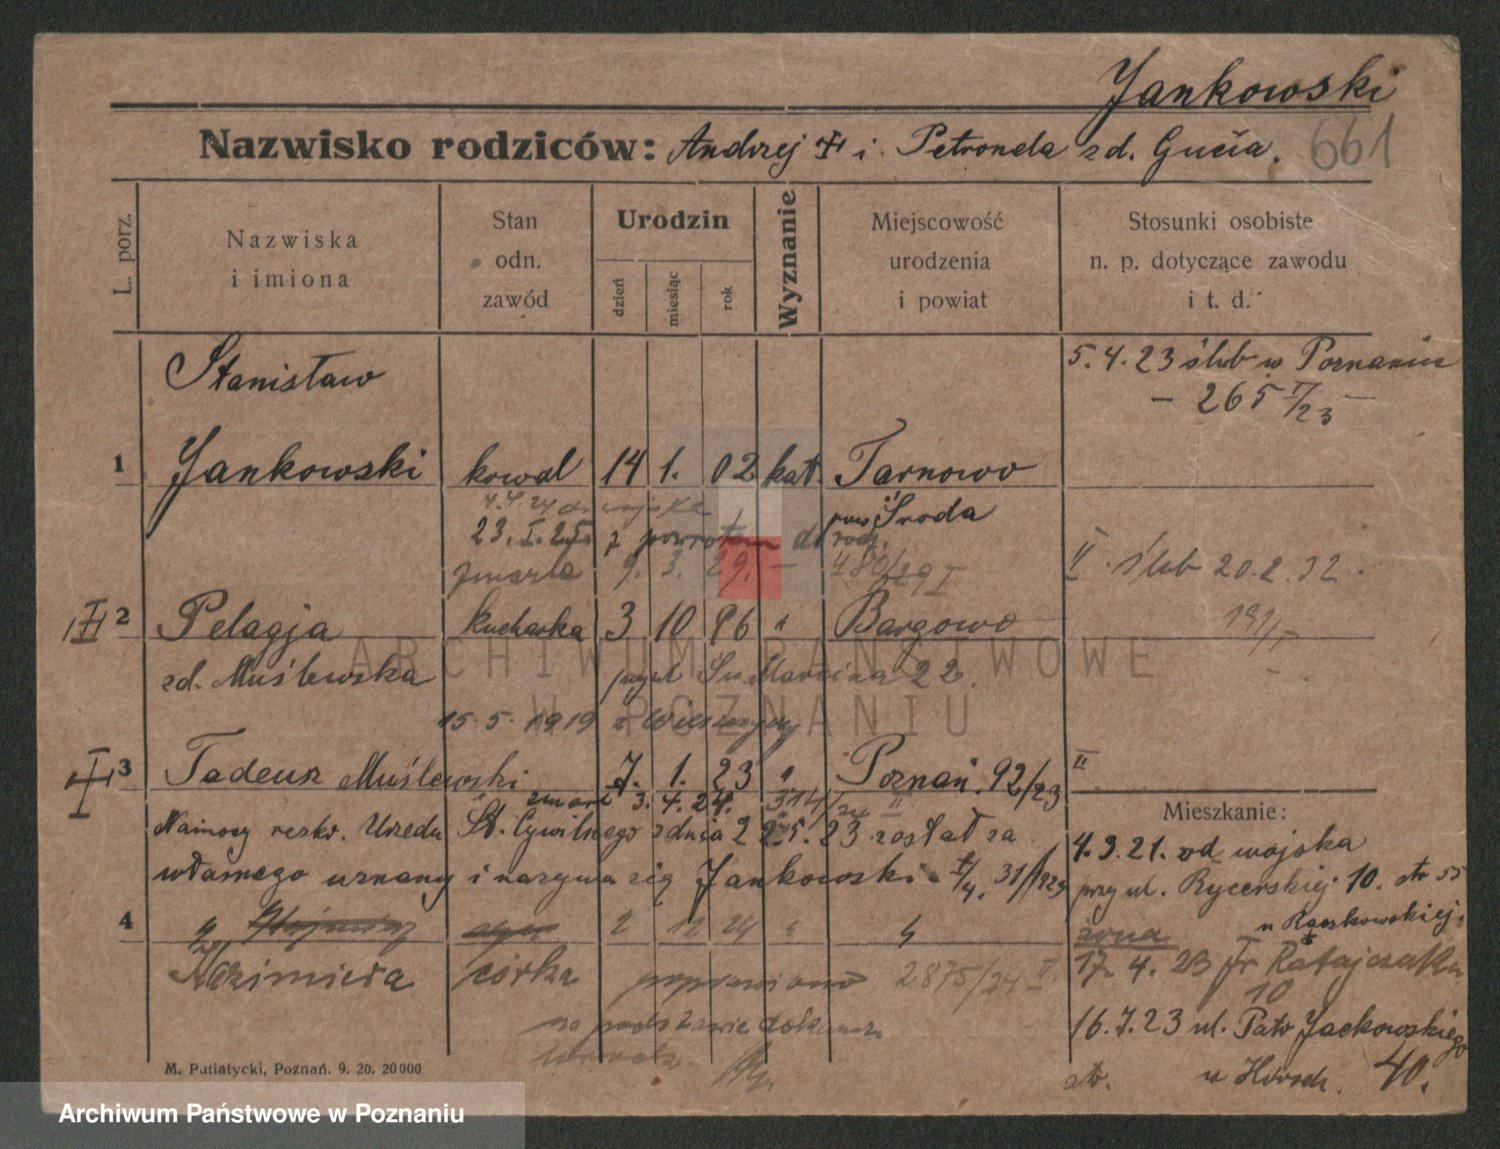 Jankowski
Nazwisko rodziców: Andrzej i Petronela zd. Gucia.
661
L. porz.
Nazwiska
i imiona
Stan
odn.
zawód
Urodzin
dzień
miesiąc
rok
Wyznanie
Miejscowość
urodzenia
i powiat
Stosunki osobiste
n. p. dotyczące zawodu
i t. d.
Stanisław
5. 4. 23 ślub w Poznaniu
- 265 I/23 -
1 Jankowski kowal 14 1. 02 kat. Tarnowo
4.4.24 do wojska
pow. Środa
23. I. 25. z powrotem do rodz.
zmarła 9. 3. 29. - 480/29 I
II. ślub 20. 2. 32.
191/I
III 2 Pelagja kucharka 3 10 96 " Bargowo
zd. Muślewska Św. Marcina 22.
15. 5. 1919 z
3 Tadeusz Muślewski 7. 1. 23 " Poznań. 92/23
II
zmarł 3. 4. 24. 314/24 II
Urzędu St. Cywilnego z dnia 22. 5. 23 został za
własnego uznany i nazywa się Jankowski
Mieszkanie:
4. 3. 21. od wojska
przy ul. Rycerskiej 10. str 55
u Raczkowskiej.
4 " 2 12 24 " "
Kazimiera córka poprawiono 2875/24 II
na podstawie
żona
17. 4. 23 Fr Ratajczaka
10
16. 7. 23 ul. Patr Jackowskiego
str. u Horoch. 40.
M. Putiatycki, Poznań. 9. 20. 20000
ARCHIWUM PAŃSTWOWE
W POZNANIU
Archiwum Państwowe w Poznaniu